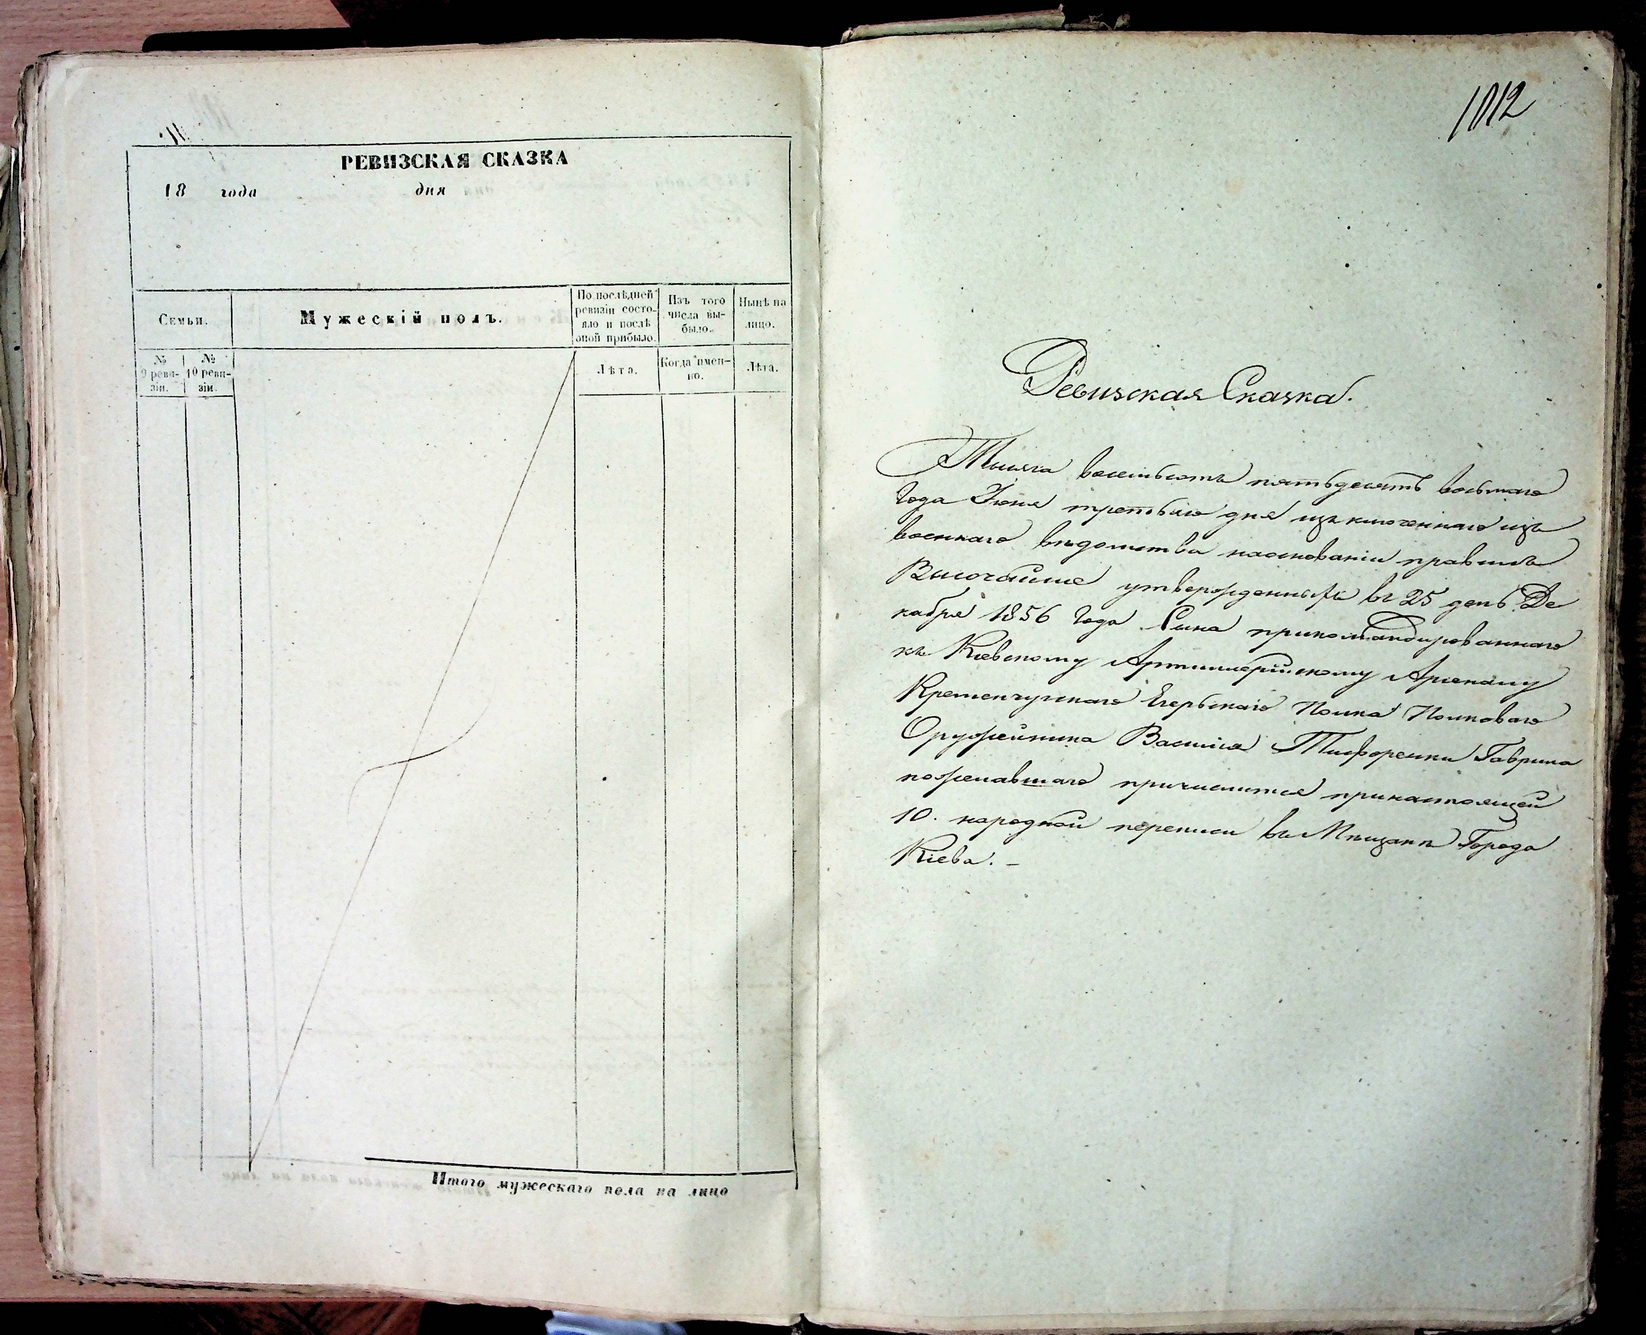 РЕВИЗСКАЯ СКАЗКА
18 года дня
Семьи.
Мужескій полъ.
По послѣдней
ревизіи состо-
яло и послѣ
оной прибыло.
Изъ того
числа вы-
было.
Нынѣ на
лицо.
№
9 реви-
зіи.
№
10 реви-
зіи.
Лѣта.
Когда имен-
но.
Лѣта.
Итого мужескаго пола на лицо
1012
Ревизская Сказка.
Тысяча восемьсотъ пятьдесятъ восьмаго
Года Іюня третьяго дня изключеннаго изъ
военнаго вѣдомства наоснованіи правилъ
Высочайше утвержденныхъ въ 25 день Де
кабря 1856 Года Сына прикомандированнаго
къ Кіевскому Артиллерійскому Арсеналу
Кременчугскаго Егерьскаго Полка Полковаго
Оружейника Василія Гаврила
пожелавшаго причислится принастоящей
10. народной переписи въ Мѣщане Города
Кіева. –